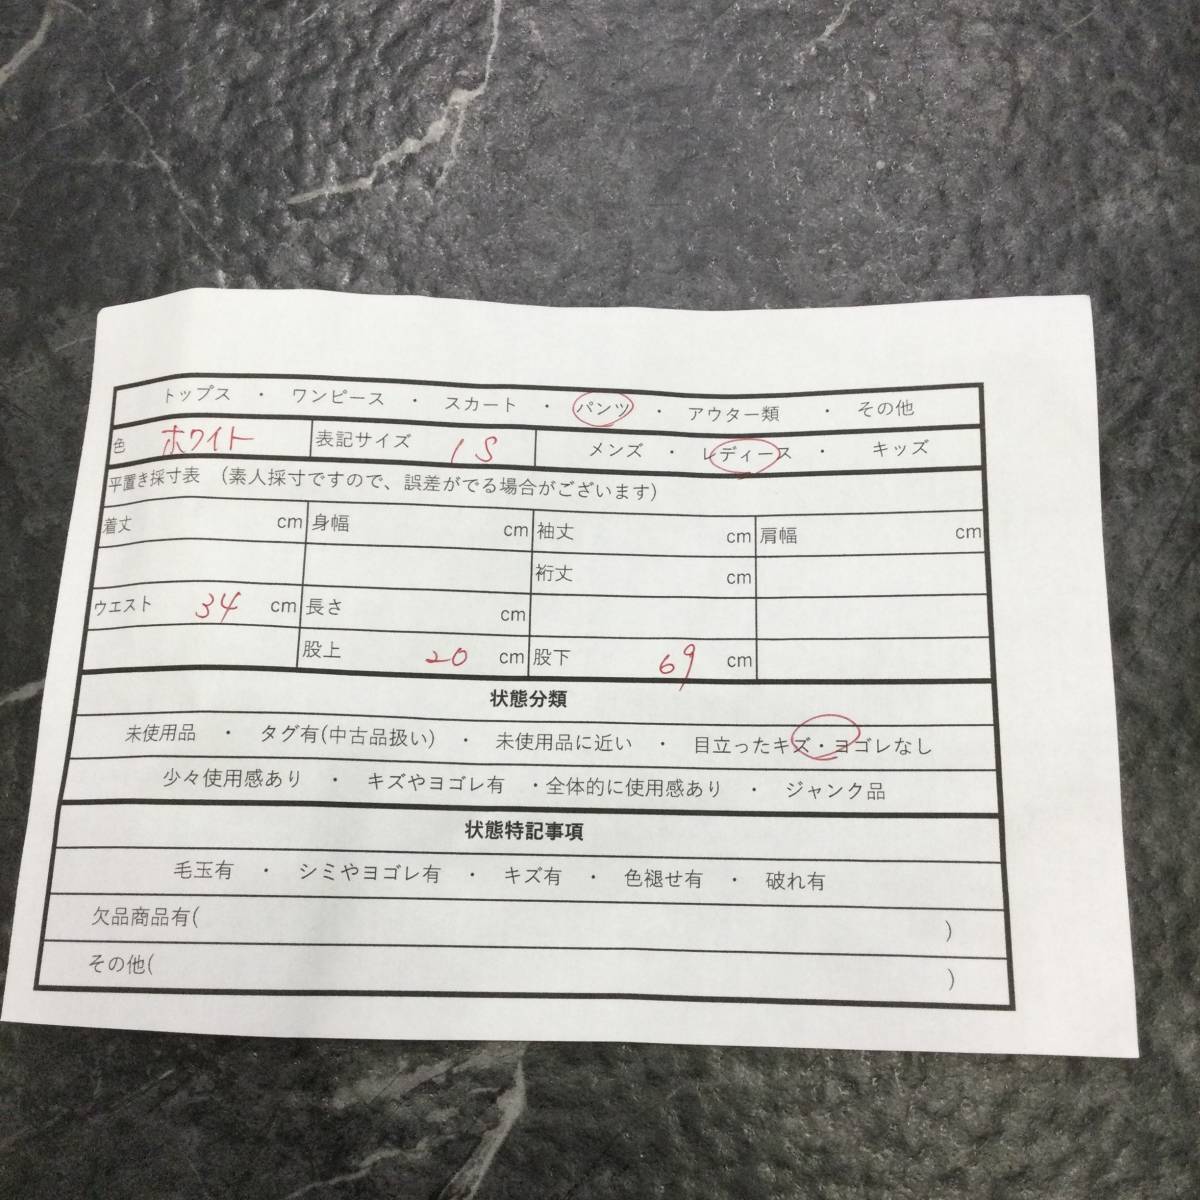 トップス ・ ワンピース ・ スカート ・ パンツ ・ アウター類 ・ その他
色 ホワイト 表記サイズ 1S メンズ ・ レディース ・ キッズ
平置き採寸表 (素人採寸ですので、誤差がでる場合がございます)
着丈 cm 身幅 cm 袖丈 cm 肩幅 cm
裄丈 cm
ウエスト 34 cm 長さ cm
股上 20 cm 股下 69 cm
状態分類
未使用品 ・ タグ有(中古品扱い) ・ 未使用品に近い ・ 目立ったキズ・ヨゴレなし
少々使用感あり ・ キズやヨゴレ有 ・全体的に使用感あり ・ ジャンク品
状態特記事項
毛玉有 ・ シミやヨゴレ有 ・ キズ有 ・ 色褪せ有 ・ 破れ有
欠品商品有( )
その他( )